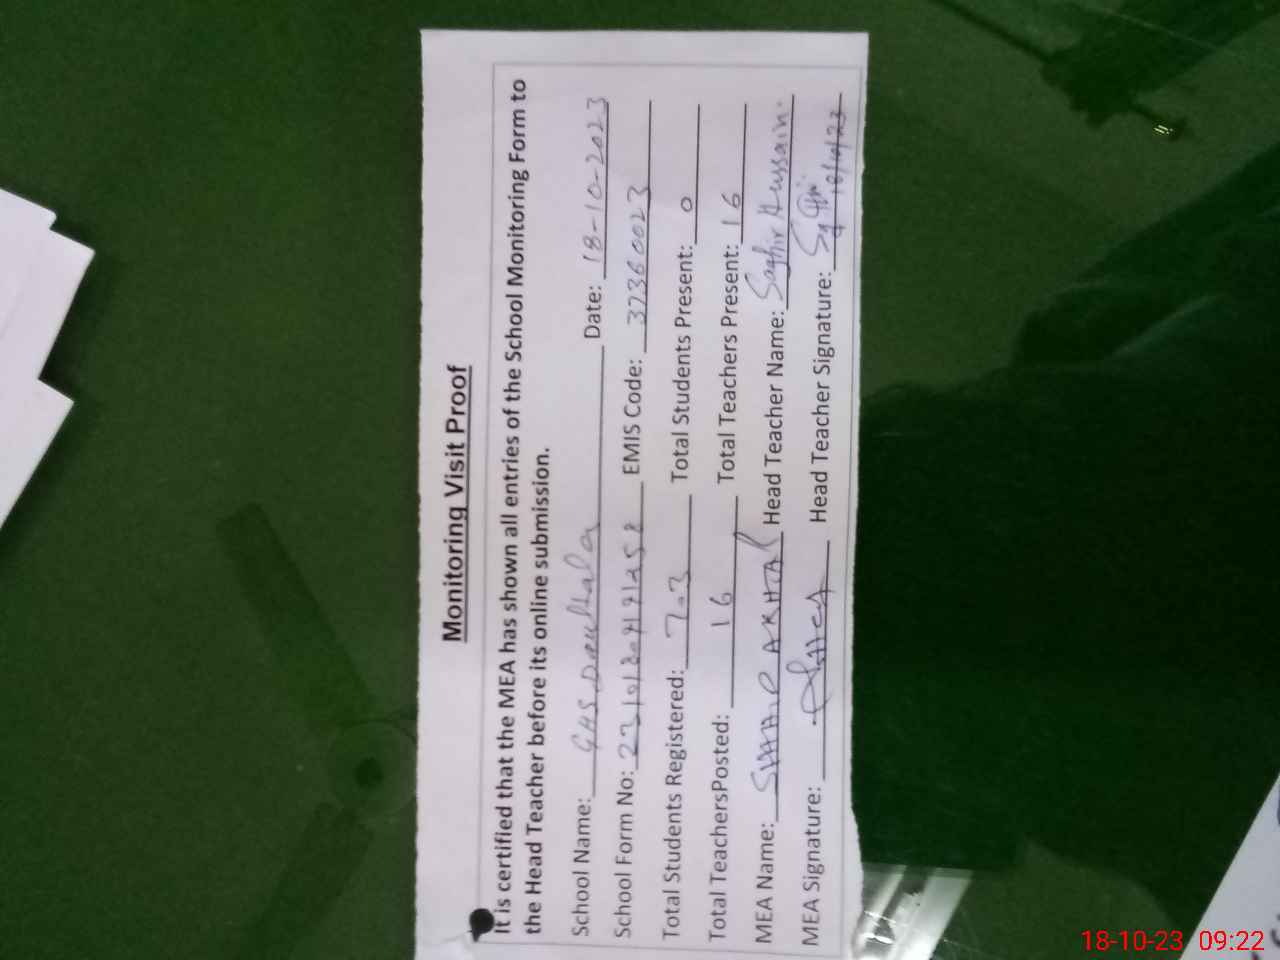 Monitoring Visit Proof
It is certified that the MEA has shown all entries of the School Monitoring Form to
the Head Teacher before its online submission.
School Name: GHS Daultala Date: 18-10-2023
School Form No: EMIS Code: 37360023
Total Students Registered: 703 Total Students Present: 0
Total TeachersPosted: 16 Total Teachers Present: 16
MEA Name: AKHTAR Head Teacher Name: Saghir Hussain.
MEA Signature: Head Teacher Signature:
18/10/23
18-10-23 09:22